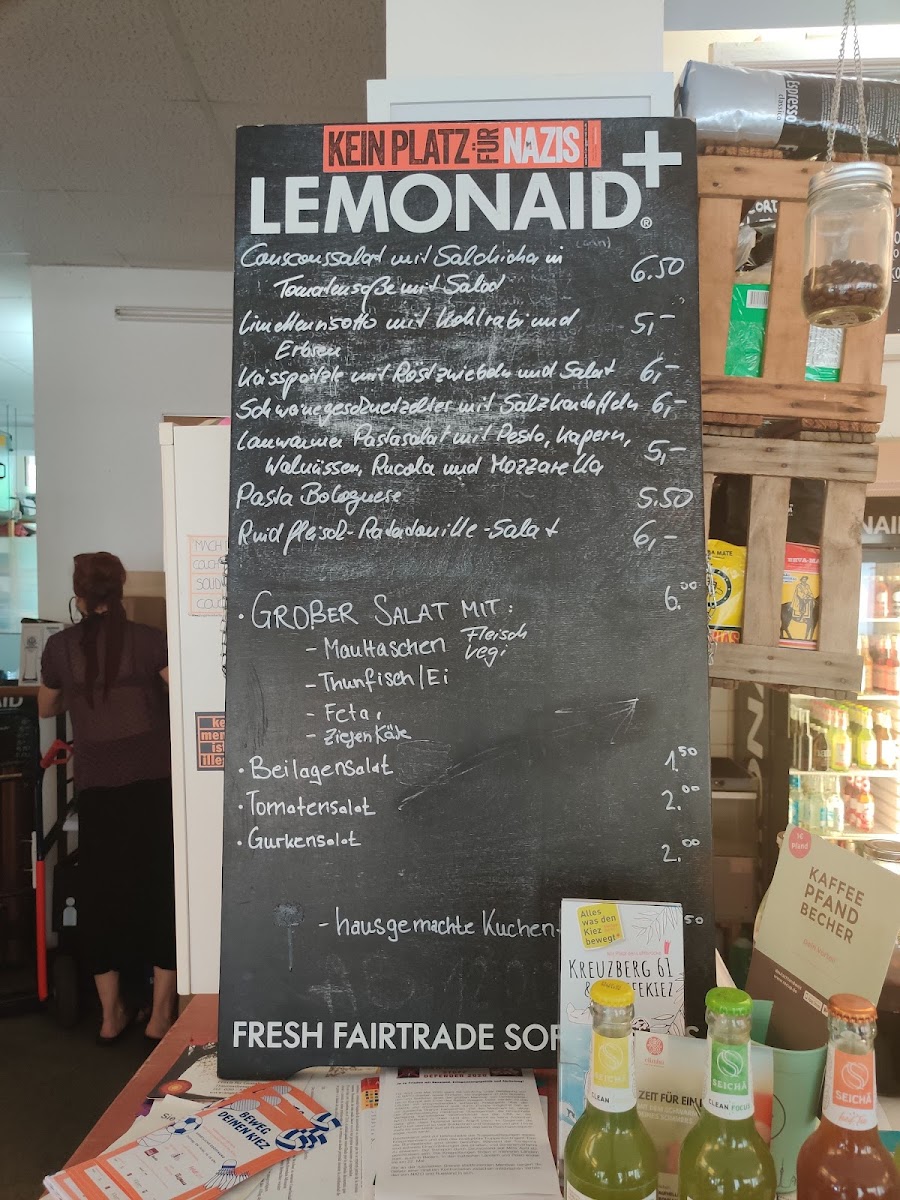 KEIN PLATZ FÜR NAZIS
LEMONAID+®
Couscoussalat mit Salchicha in 6.50
Tomatensoße mit Salat
Limettenrisotto mit Kohlrabi und 5,-
Erbsen
Kässpätzle mit Röstzwiebeln und Salat 6,-
Schweinegeschnetzeltes mit Salzkartoffeln 6,-
Lauwarmer Pastasalat mit Pesto, Kapern, 5,-
Walnüssen, Rucola und Mozzarella
Pasta Bolognese 5.50
Rindfleisch-Ratatouille-Salat 6,-
· GROẞER SALAT MIT: 6.00
- Maultaschen Fleisch
Vegi
- Thunfisch/Ei
- Feta,
- Ziegenkäse
· Beilagensalat 1.50
· Tomatensalat 2.00
· Gurkensalat 2.00
- hausgemachte Kuchen- 50
FRESH FAIRTRADE SOF
Espresso
classico
MACH
SOLID
ke
men
ist
ille
MATE
Alles
was den
Kiez
bewegt
KREUZBERG 61
&
KIEZ
1€
Pfand
KAFFEE
PFAND
BECHER
ZEIT FÜR EIN
BEWEG
DEINEN KIEZ
SEICHÃ
CLEAN
SEICHÃ
CLEAN FOCUS
SEICHÃ